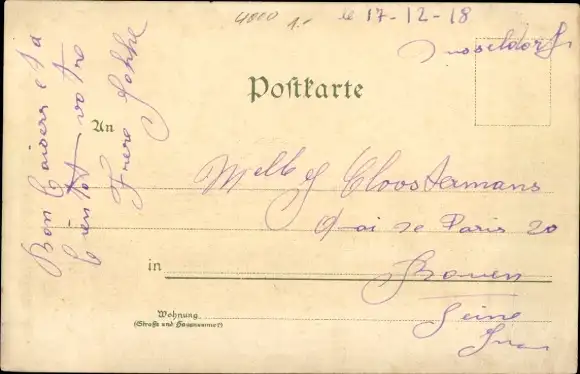 4800 1.-
le 17-12-18
Dusseldorf
Postkarte
An
Melle Cloostermans
Quai de Paris 20
in Rouen
Seine
Wohnung
(Straße und Hausnummer)
Bon Baisers et a
bientot votre
Frere